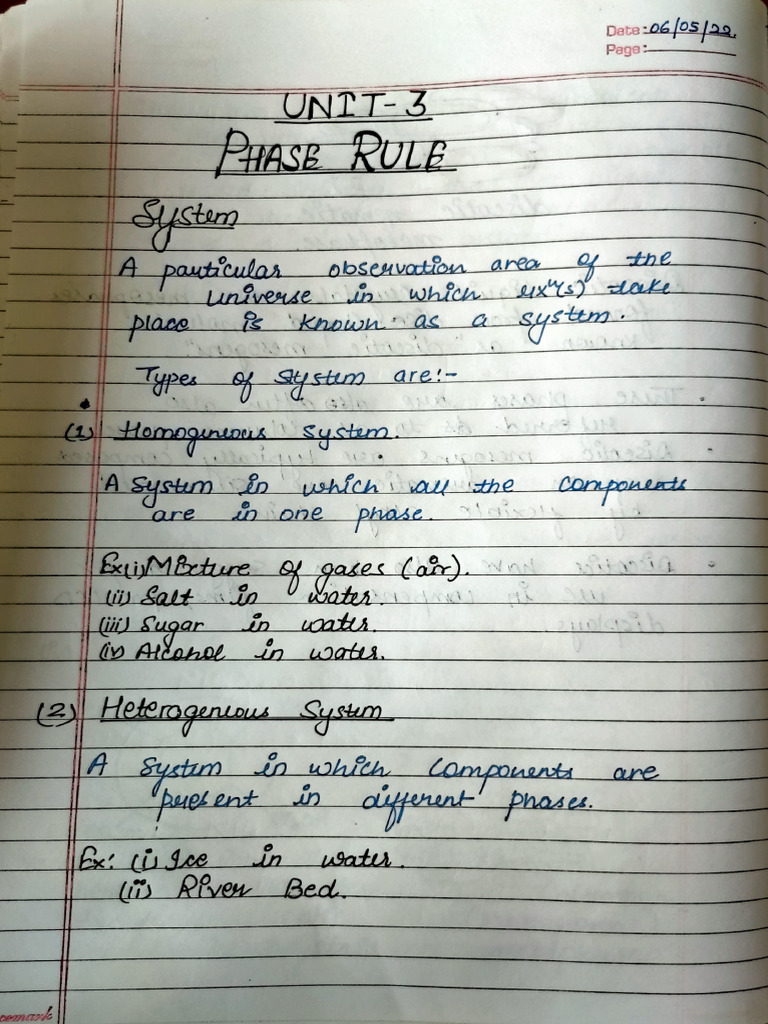 Date: 06/05/22.
Page:
UNIT-3
PHASE RULE
System
A particular observation area of the
universe in which rxn(s) take
place is known as a system.
Types of system are:-
(1) Homogeneous System.
A System in which all the components
are in one phase.
Ex(i) Mixture of gases (air).
(ii) Salt in water.
(iii) Sugar in water.
(iv) Alcohol in water.
(2) Heterogeneous System
A System in which components are
present in different phases.
Ex: (i) Ice in water.
(ii) River Bed.